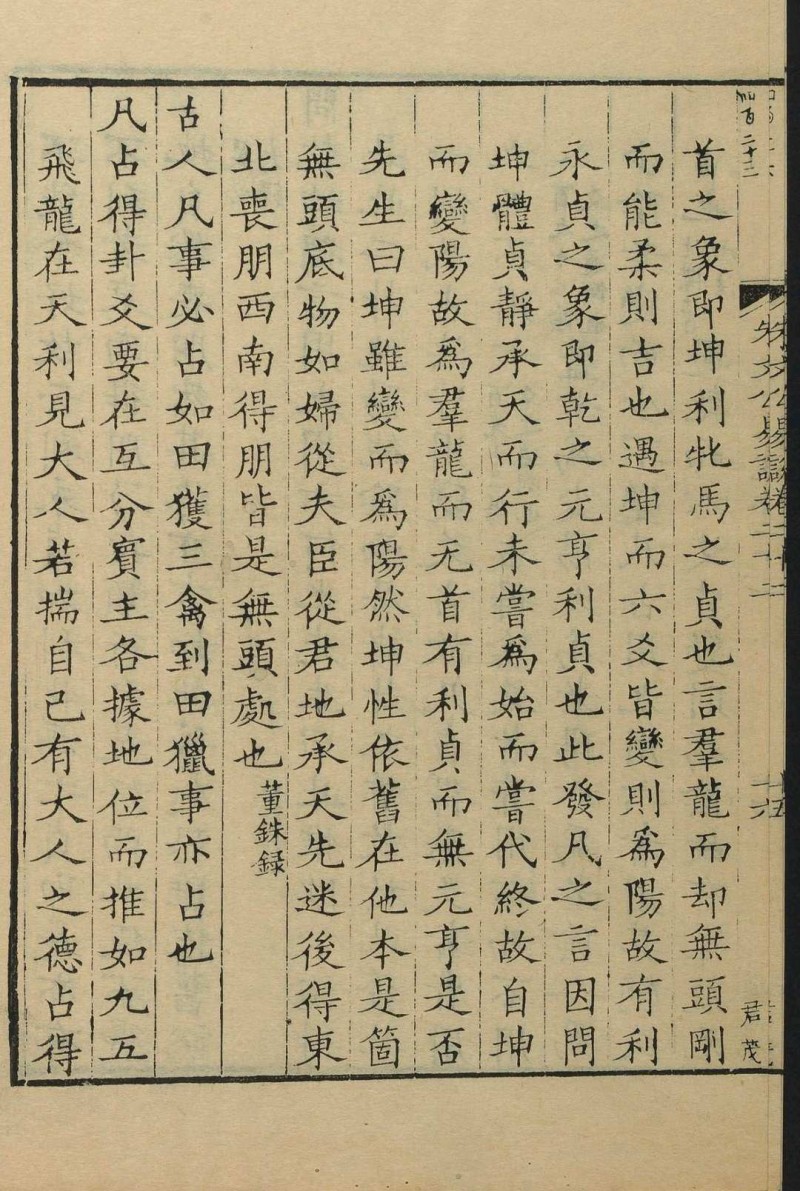 首之象即坤利牝馬之貞也言羣龍而却無頭剛
而能柔則吉也遇坤而六爻皆變則爲陽故有利
永貞之象即乾之元亨利貞也此發凡之言因問
坤體貞靜承天而行未嘗爲始而嘗代終故自坤
而變陽故爲羣龍而无首有利貞而無元亨是否
先生曰坤雖變而爲陽然坤性依舊在他本是箇
無頭底物如婦從夫臣從君地承天先迷後得東
北喪朋西南得朋皆是無頭處也董銖録
古人凡事必占如田獲三禽到田獵事亦占也
凡占得卦爻要在互分賓主各據地位而推如九五
飛龍在天利見大人若揣自己有大人之德占得